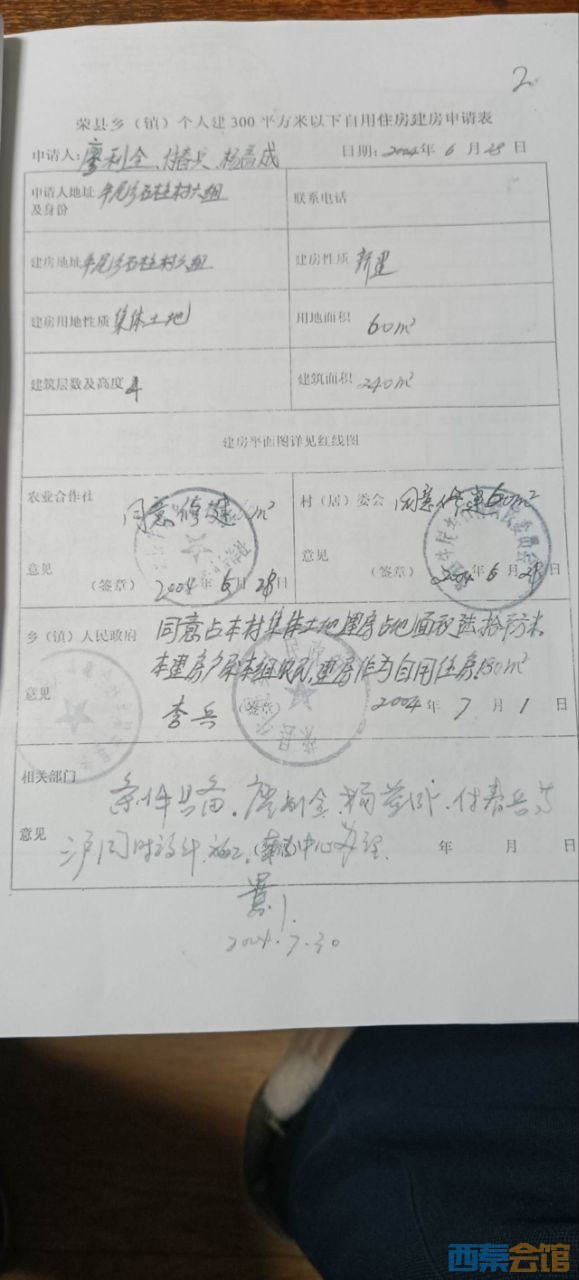 2
荣县乡（镇）个人建300平方米以下自用住房建房申请表
申请人：廖利全、付春兵、杨 成 日期：2004年6月28日
申请人地址及身份 石柱村六组 联系电话
建房地址 石柱村六组 建房性质 新建
建房用地性质 集体土地 用地面积 60m²
建筑层数及高度 4 建筑面积 240m²
建房平面图详见红线图
农业合作社 同意修建 m² 村（居）委会 同意修建60m²
意见 （签章） 2004年6月28日 意见 （签章） 2004年6月28日
乡（镇）人民政府 同意占本村集体土地建房占地面积陆拾平方米。
本建房户系本组农民，建房作为自用住房 m²
意见 李兵 （签章） 2004年7月1日
相关部门 条件具备。廖利全、杨 、付春兵等
意见 三户同时设计、施工。 中心办理. 年 月 日
2004.7.30
西秦会馆